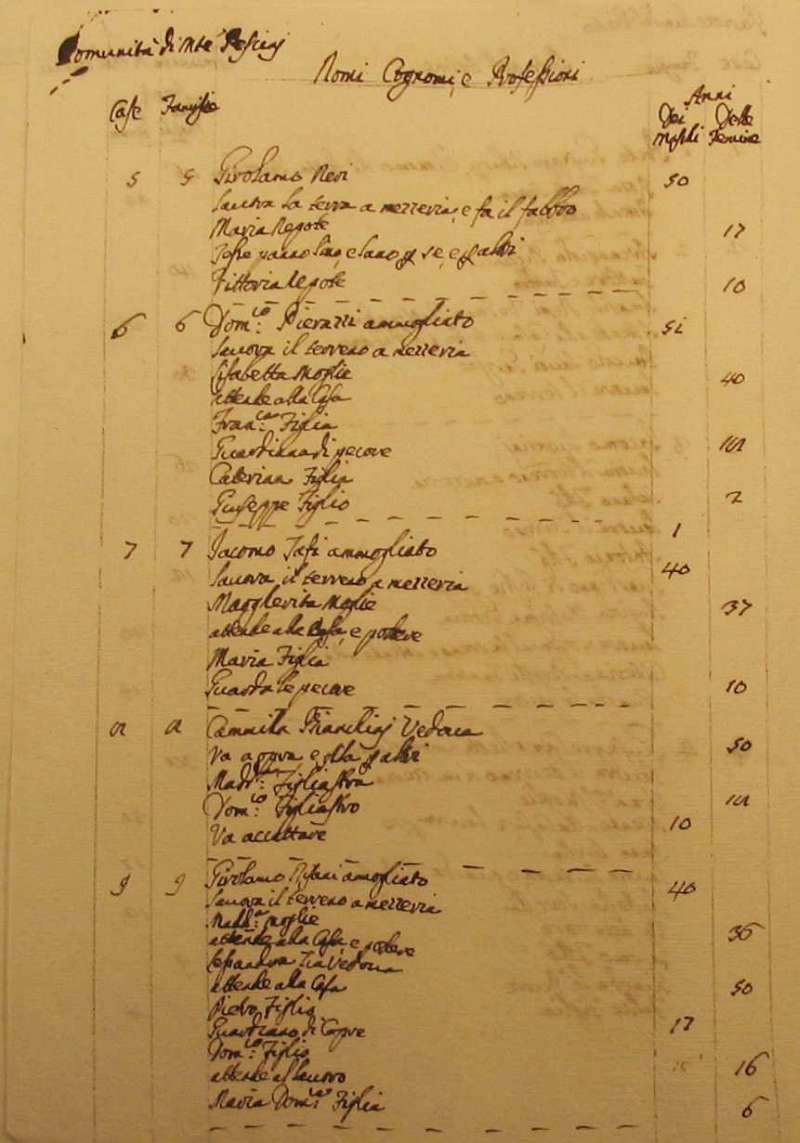 Comunità di Mte
Nomi Cognomi, e Professioni
Case Famiglie
Anni
Dei Maschi Delle Femine
5 5 Girolamo Neri 50
Lavora la terra a mezzeria, e fa il fabbro
Maria Nepote 17
Tesse panno lino, e lano p se, e p altri
Vittoria Nepote 10
6 6 Dom.co Pierazzi ammogliato 51
Lavora il terreno a mezzeria
Lisabetta Moglie 40
attende alla Casa
Fran.ca Figlia
Guardiana di pecore
Caterina Figlia 2
Giuseppe Figlio 1
7 7 Jacomo Tafi ammogliato 40
Lavora il terreno a mezzeria
Margherita Moglie 37
attende alla Casa, e podere
Maria Figlia 10
Guarda le pecore
Cammilla Vedova 50
Va a opra e p altri
Madd.na Figliastra
Dom.co Figliastro 10
Va accattare
9 9 Girolamo amogliato 40
Lavora il terreno a mezzeria
Madd.a Moglie 36
attende alla Casa, e podere
Lesandra Zia Vedova 50
attende alla Casa
Pietro Figlio 17
Guardiano di Capre
Dom.ca Figlia 16
attende al lavoro
Maria Dom.ca Figlia 6